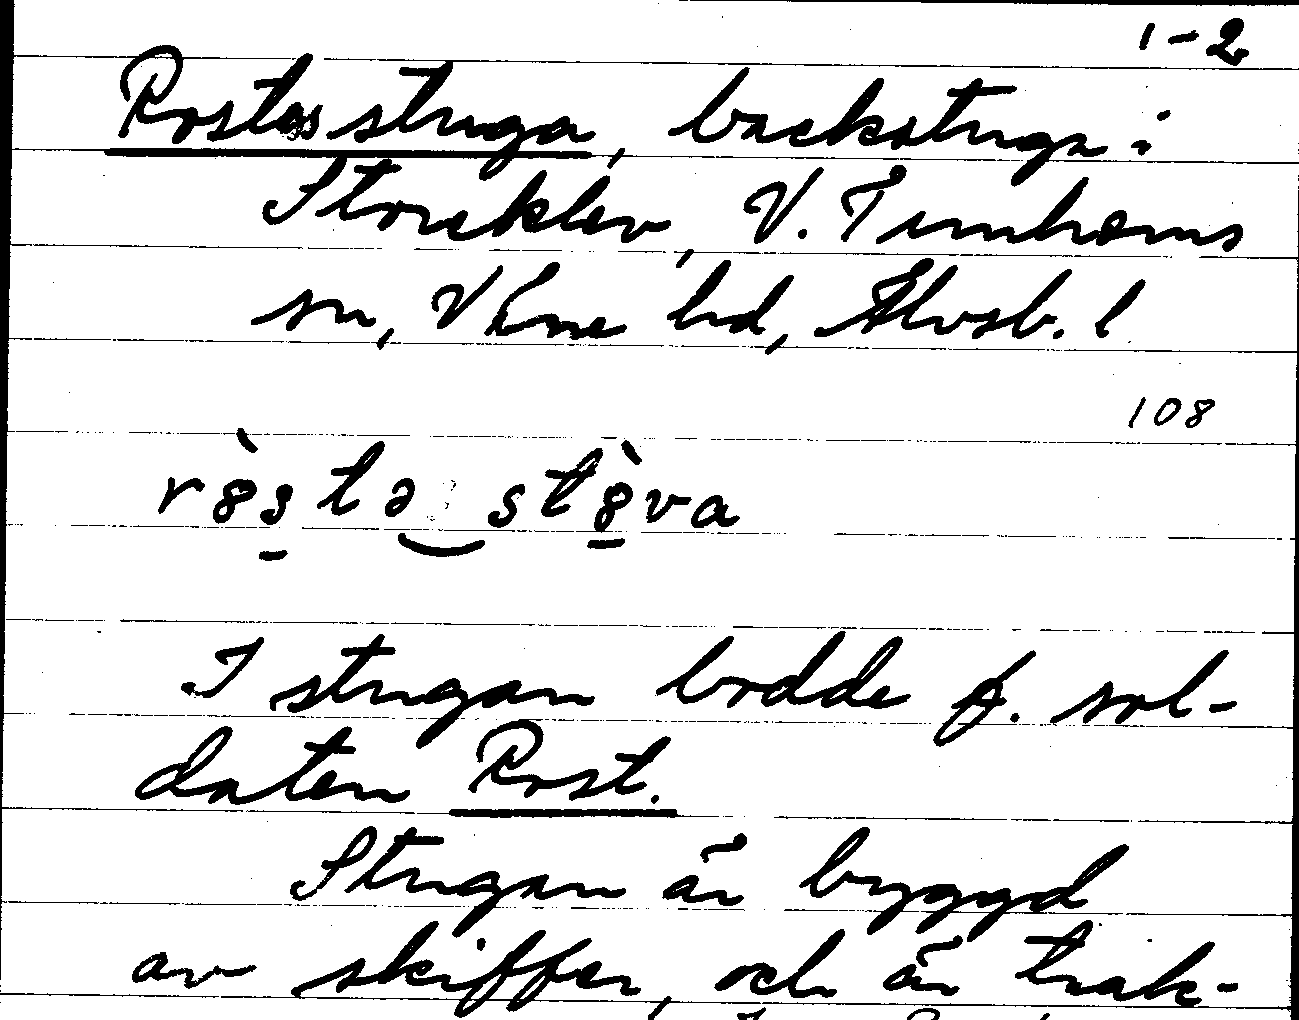 1-2
Rostas stuga, backstuga i
Storeklev, V. Tunhems
sn, Väne hd, Älvsb. l
108
I stugan bodde f. sol-
daten Rost.
Stugan är byggd
av skiffer, och är trak-